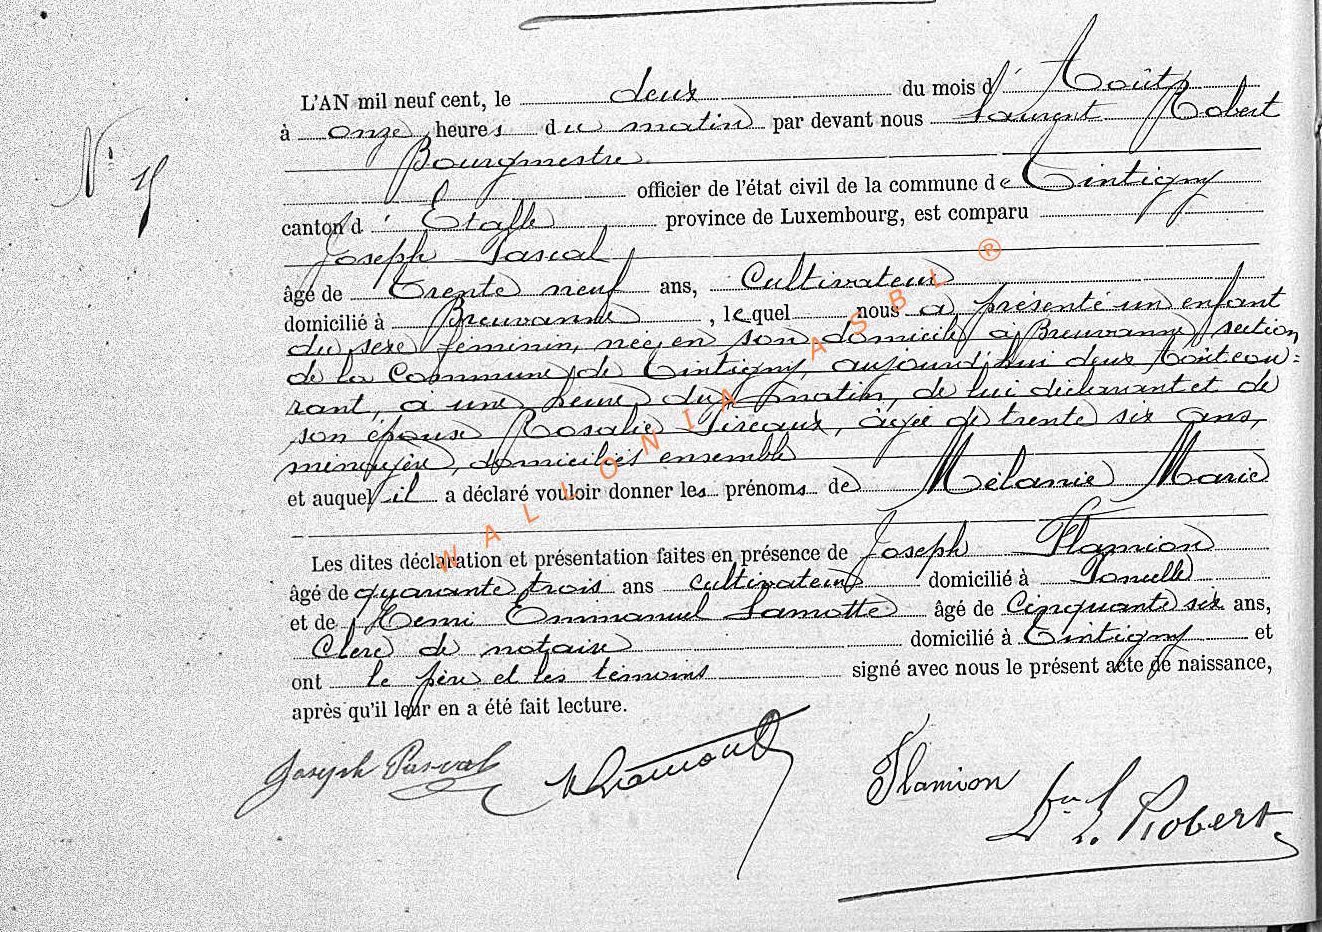 L'AN mil neuf cent, le deux du mois d' Août
à onze heures du matin par devant nous Laurent Robert
Bourgmestre
officier de l'état civil de la commune de Tintigny
canton d' Etalle province de Luxembourg, est comparu
Joseph Pascal
âgé de trente neuf ans, Cultivateur
domicilié à Breuvanne, lequel nous a présenté un enfant
du sexe féminin, née en son domicile à Breuvanne section
de la Commune de Tintigny, aujourd'hui deux Août cou=
rant, à une heure du matin, de lui déclarant et de
son épouse Rosalie Pireaux, âgée de trente six ans,
ménagère, domiciliés ensemble
et auquel il a déclaré vouloir donner les prénoms de Mélanie Marie
Les dites déclaration et présentation faites en présence de Joseph Flamion
âgé de quarante trois ans cultivateur domicilié à Poncelle
et de Henri Emmanuel Lamotte âgé de Cinquante six ans,
Clerc de notaire domicilié à Tintigny et
ont le père et les témoins signé avec nous le présent acte de naissance,
après qu'il leur en a été fait lecture.
N° 15
Joseph Pascal
Flamion
Dr L. Robert
WALLONIA ASBL ®